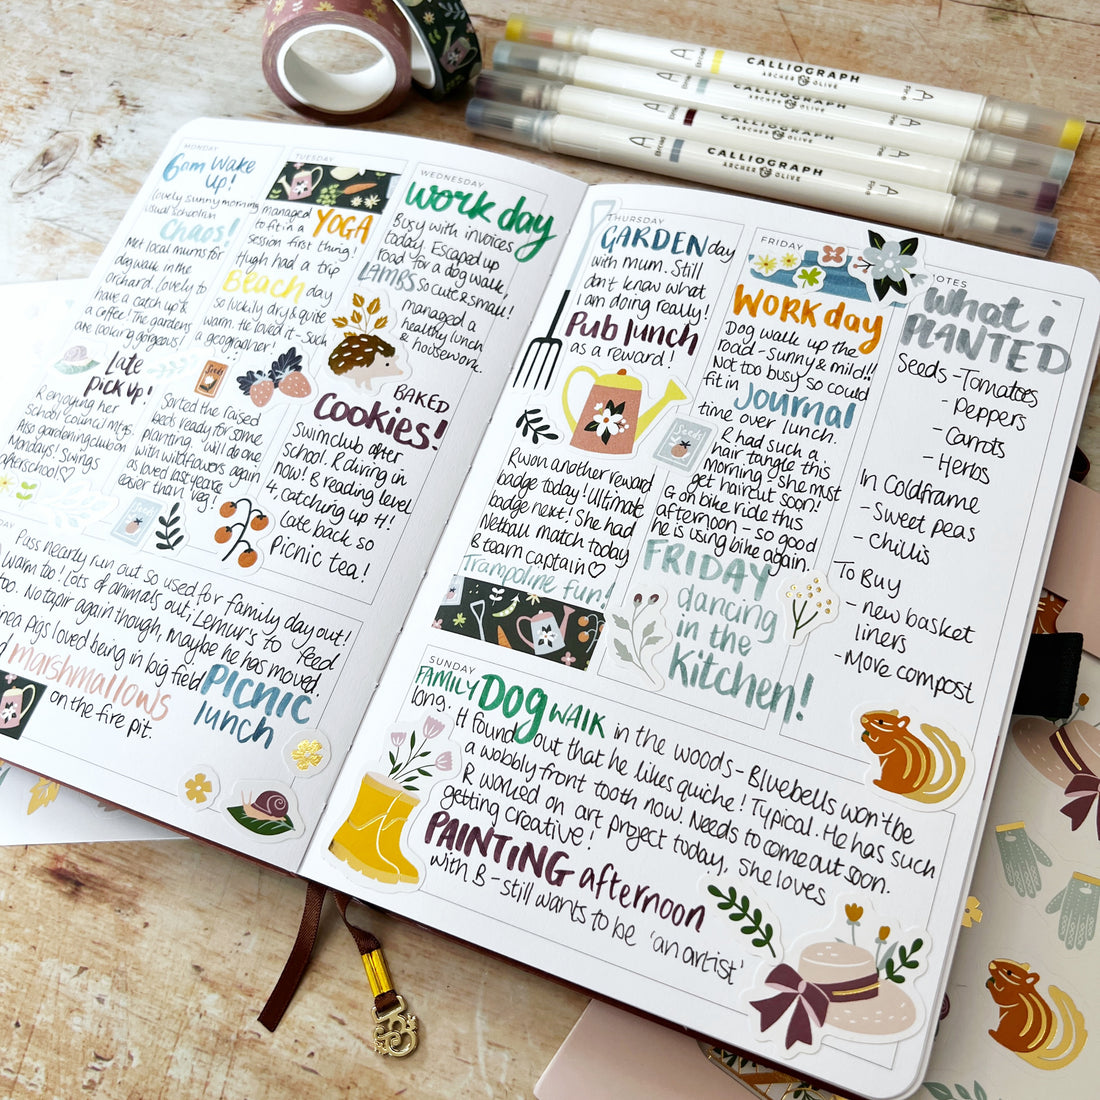 MONDAY
6am Wake
up!
lovely sunny morning
usual school run
Chaos!
Met local mums for
dog walk in the
orchard. lovely to
have a catch up &
a coffee! The gardens
are looking gorgeous!
Late
PiCK uP!
R enjoying her
school council mtgs.
Also gardening club on
Mondays! Swings
afterschool♡
TUESDAY
managed
to fit in a YOGA
session first thing!
Hugh had a trip
Beach day
so lucky dry & quite
warm. He loved it - such
a geographer!
Seeds
Sorted the raised
beds ready for some
planting. Will do one
with wildflowers again
as loved last years
easier than veg!
Seeds
WEDNESDAY
work day
Busy with invoices
today. Escaped up
road for a dog walk,
LAMBS so cute & small!
managed a
healthy lunch
& housework.
BAKED
Cookies!
Swim club after
school. R diving in
now! B reading level
4, catching up H!
Late back so
picnic tea!
DAY
Pass nearly run out so used for family day out!
warm too! Lots of animals out; Lemur's to feed
too. No tapir again though, maybe he has moved.
nea pigs loved being in big field
marshmallows
on the fire pit.
PICNIC
lunch
THURSDAY
GARDEN day
with mum. Still
don't know what
I am doing really!
Pub lunch
as a reward!
Seeds
R won another reward
badge today! Ultimate
badge next! She had
Netball match today
B team captain♡
Trampoline fun!
FRIDAY
WORK day
Dog walk up the
road - sunny & mild!!
Not too busy so could
fit in Journal
time over lunch.
R had such a
hair tangle this
morning! she must
get haircut soon!
G on bike ride this
afternoon - so good
he is using bike again.
FRIDAY
dancing
in the
Kitchen!
NOTES
What i
PLANTED
Seeds - Tomatoes
- Peppers
- Carrots
- Herbs
In Coldframe
- Sweet peas
- Chillis
To Buy
- new basket
liners
- More compost
SUNDAY
FAMILY DOG WALK in the woods - Bluebells won't be
long. H found out that he likes quiche! Typical. He has such
a wobbly front tooth now. Needs to come out soon.
R worked on art project today, she loves
getting creative!
PAINTING afternoon
with B - still wants to be 'an artist'
A Broad CALLIOGRAPH Fine A
ARCHER & OLIVE
A Broad CALLIOGRAPH
ARCHER & OLIVE
A Broad CALLIOGRAPH Fine
ARCHER & OLIVE
A Broad CALLIOGRAPH Fine A
ARCHER & OLIVE